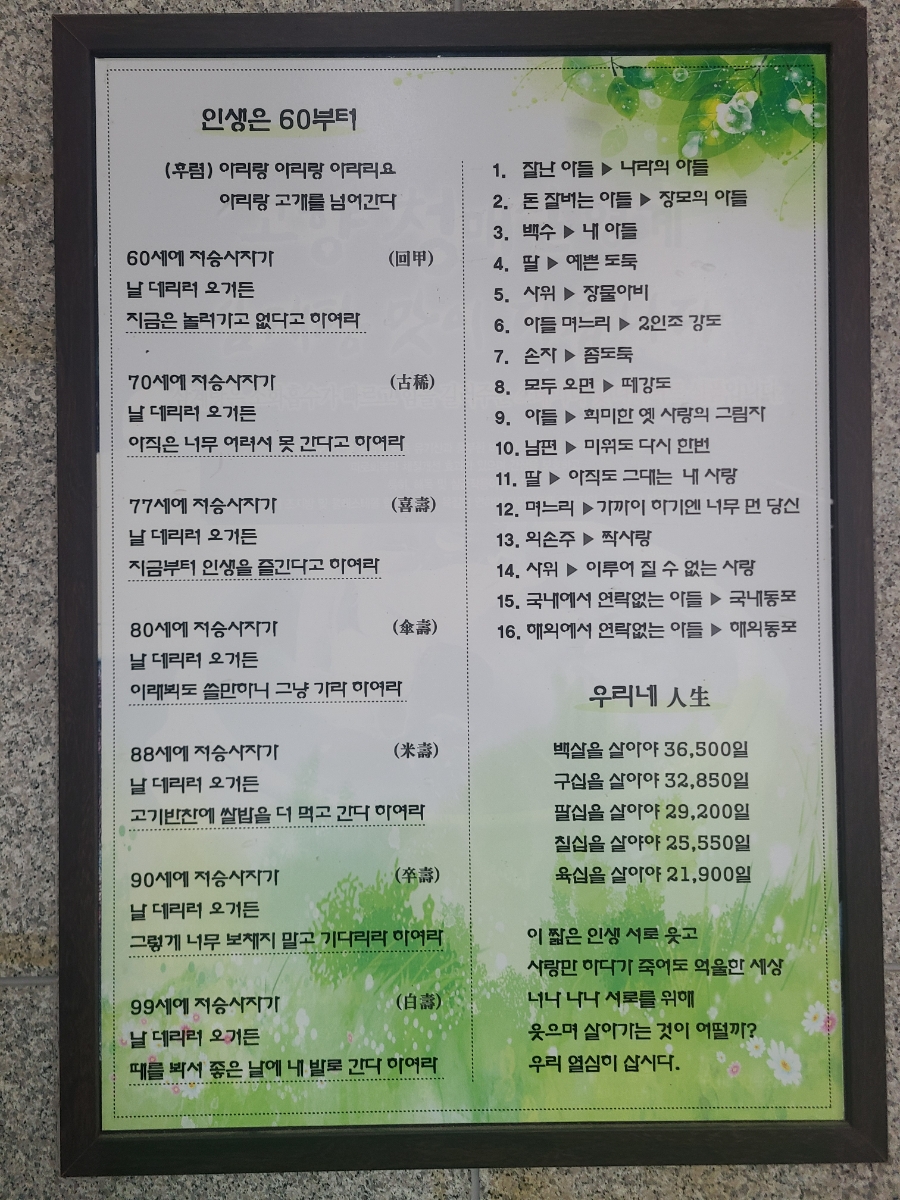 인생은 60부터
(후렴) 아리랑 아리랑 아라리요
아리랑 고개를 넘어간다
60세에 저승사자가 (回甲)
날 데리러 오거든
지금은 놀러가고 없다고 하여라
70세에 저승사자가 (古稀)
날 데리러 오거든
아직은 너무 어려서 못 간다고 하여라
77세에 저승사자가 (喜壽)
날 데리러 오거든
지금부터 인생을 즐긴다고 하여라
80세에 저승사자가 (傘壽)
날 데리러 오거든
이래뵈도 쓸만하니 그냥 가라 하여라
88세에 저승사자가 (米壽)
날 데리러 오거든
고기반찬에 쌀밥을 더 먹고 간다 하여라
90세에 저승사자가 (卒壽)
날 데리러 오거든
그렇게 너무 보채지 말고 기다리라 하여라
99세에 저승사자가 (白壽)
날 데리러 오거든
때를 봐서 좋은 날에 내 발로 간다 하여라
1. 잘난 아들 ▶ 나라의 아들
2. 돈 잘버는 아들 ▶ 장모의 아들
3. 백수 ▶ 내 아들
4. 딸 ▶ 예쁜 도둑
5. 사위 ▶ 장물아비
6. 아들 며느리 ▶ 2인조 강도
7. 손자 ▶ 좀도둑
8. 모두 오면 ▶ 떼강도
9. 아들 ▶ 희미한 옛 사랑의 그림자
10. 남편 ▶ 미워도 다시 한번
11. 딸 ▶ 아직도 그대는 내 사랑
12. 며느리 ▶가까이 하기엔 너무 먼 당신
13. 외손주 ▶ 짝사랑
14. 사위 ▶ 이루어 질 수 없는 사랑
15. 국내에서 연락없는 아들 ▶ 국내동포
16. 해외에서 연락없는 아들 ▶ 해외동포
우리네 人生
백살을 살아야 36,500일
구십을 살아야 32,850일
팔십을 살아야 29,200일
칠십을 살아야 25,550일
육십을 살아야 21,900일
이 짧은 인생 서로 웃고
사랑만 하다가 죽어도 억울한 세상
너나 나나 서로를 위해
웃으며 살아가는 것이 어떨까?
우리 열심히 삽시다.